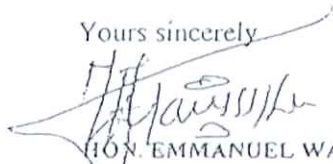 Yours sincerely
HON. EMMANUEL WA